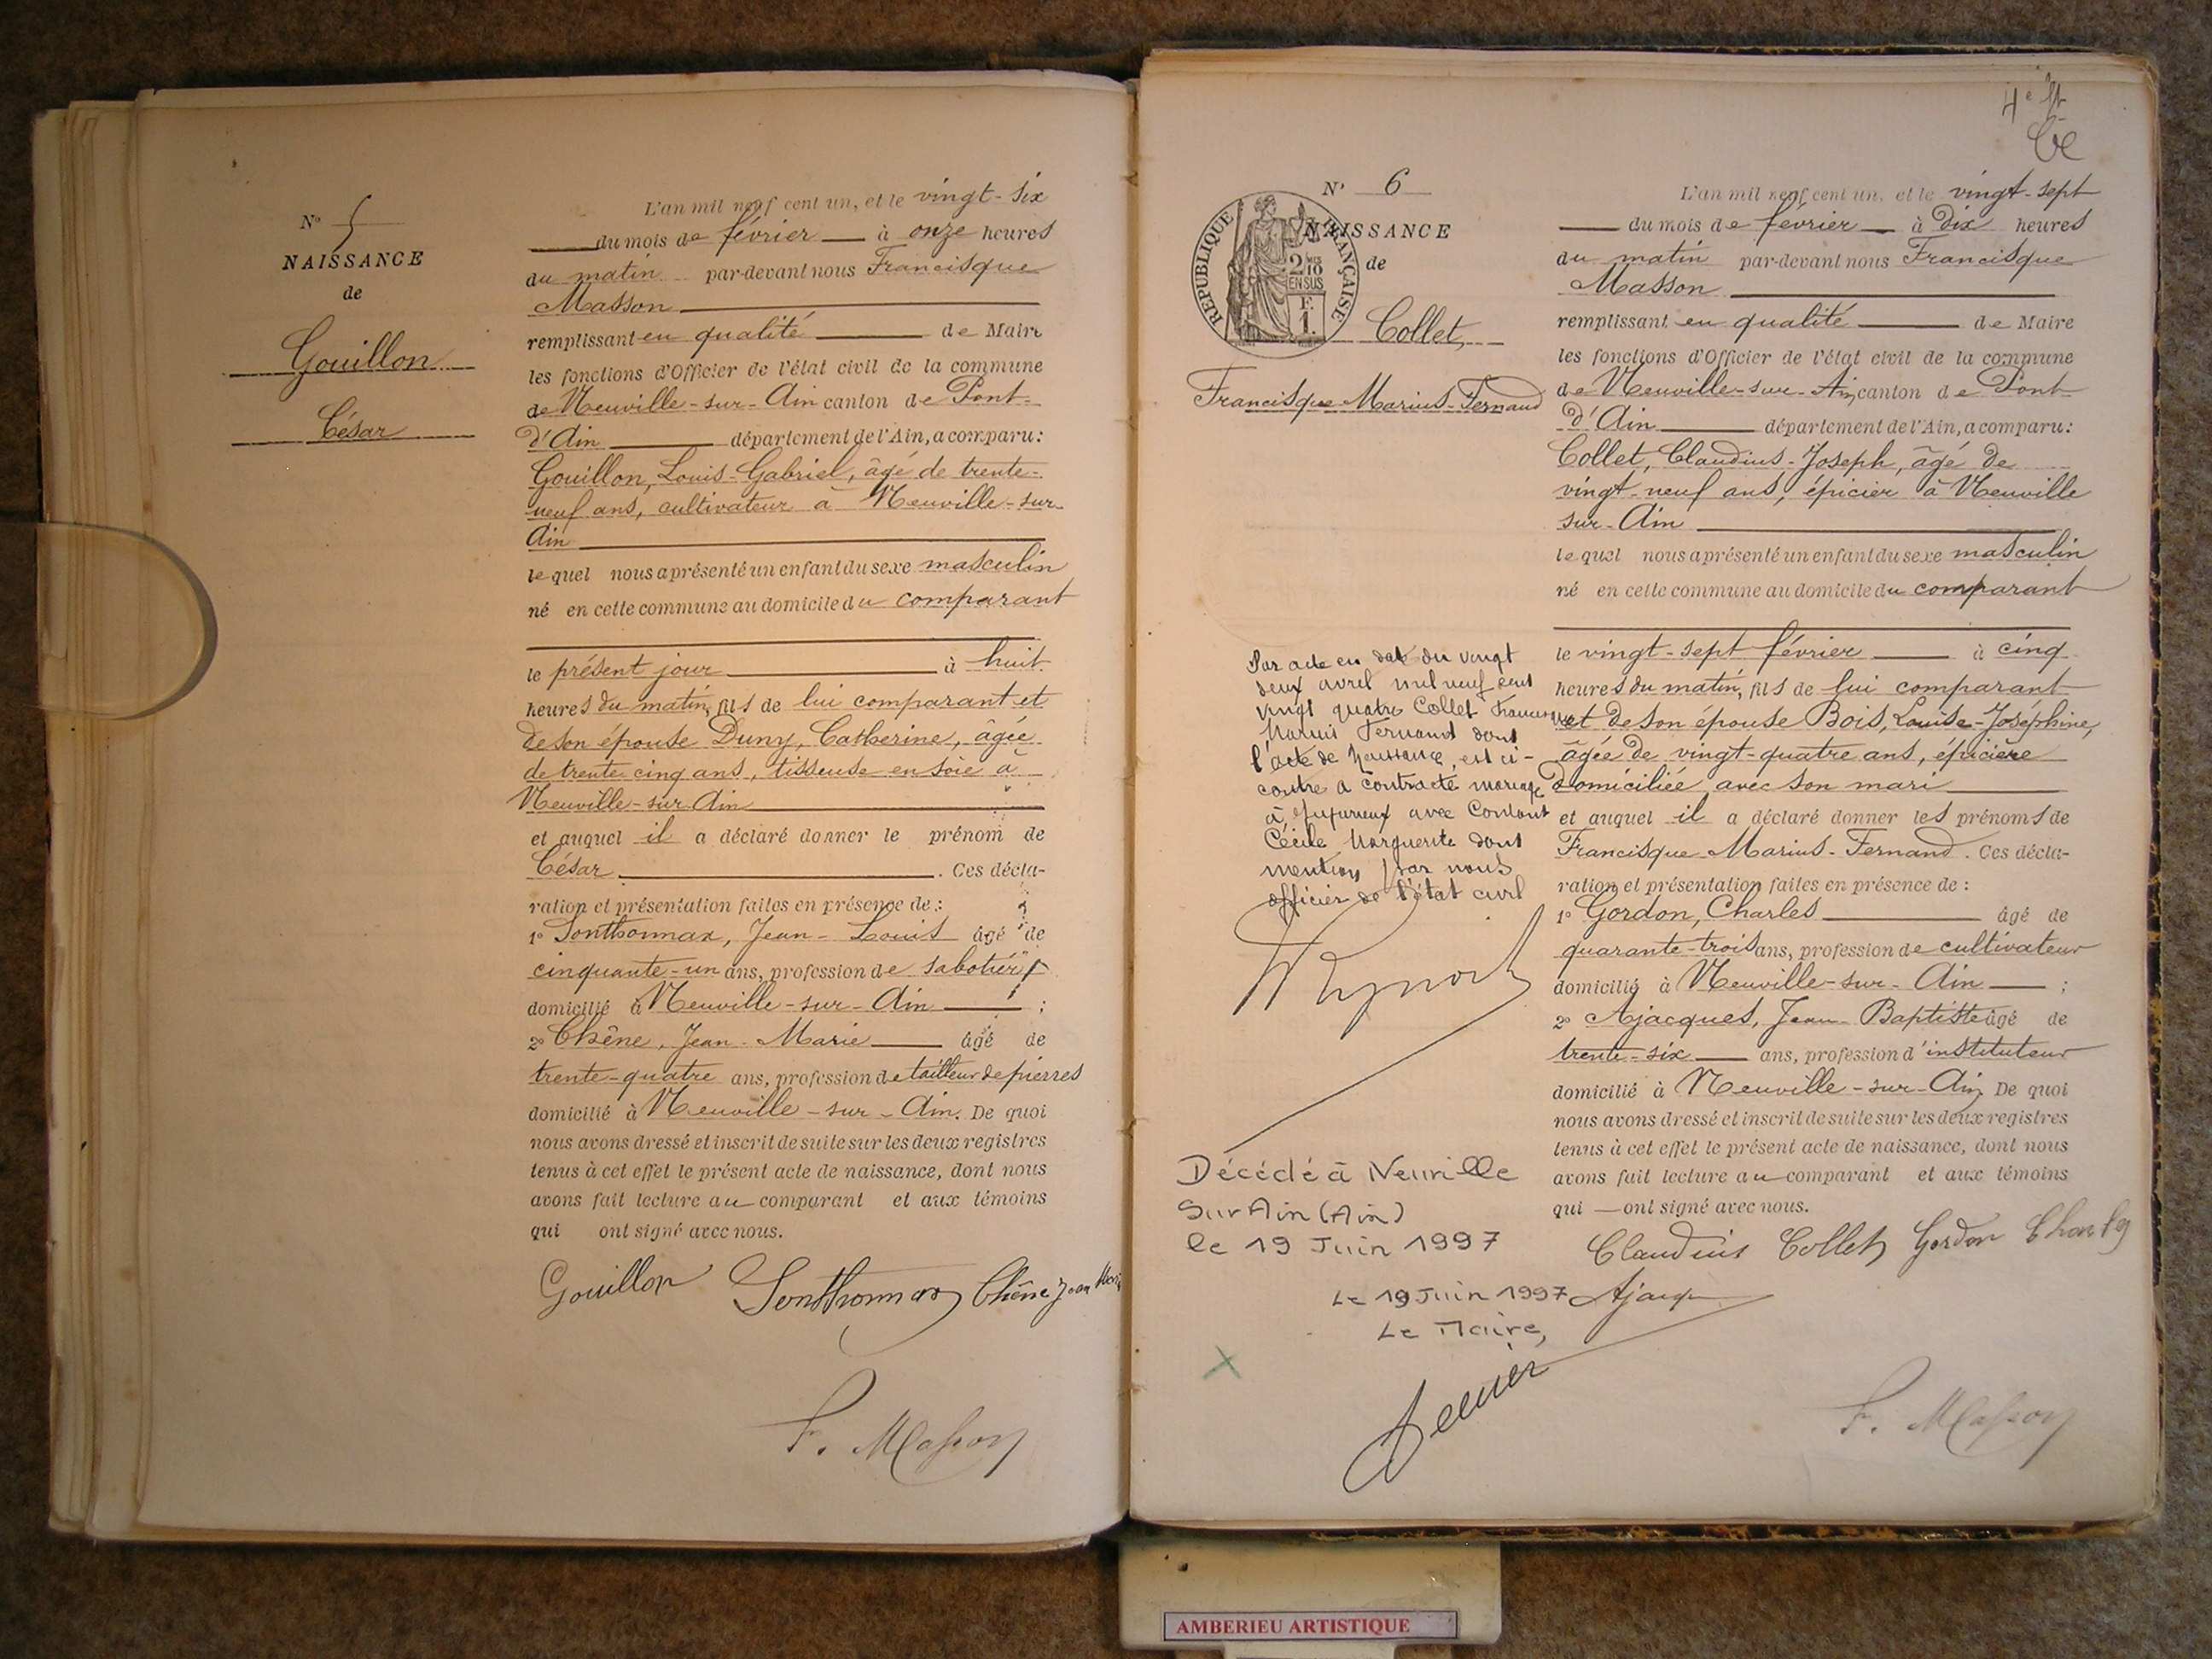 N° 5
NAISSANCE
de
Gouillon
César
L'an mil neuf cent un, et le vingt-six
du mois de février à onze heures
du matin par-devant nous Francisque
Masson
remplissant en qualité de Maire
les fonctions d'Officier de l'état civil de la commune
de Neuville-sur-Ain canton de Pont-
d'Ain département de l'Ain, a comparu:
Gouillon, Louis-Gabriel, âgé de trente-
neuf ans, cultivateur à Neuville-sur-
Ain
lequel nous a présenté un enfant du sexe masculin
né en cette commune au domicile du comparant
le présent jour à huit
heures du matin, fils de lui comparant et
de son épouse Duny, Catherine, âgée
de trente cinq ans, tisseuse en soie à
Neuville-sur-Ain
et auquel il a déclaré donner le prénom de
César. Ces décla-
ration et présentation faites en présence de:
1° Sonthonnax, Jean-Louis âgé de
cinquante-un ans, profession de sabotier
domicilié à Neuville-sur-Ain ;
2° Chêne, Jean-Marie âgé de
trente-quatre ans, profession de tailleur de pierres
domicilié à Neuville-sur-Ain. De quoi
nous avons dressé et inscrit de suite sur les deux registres
tenus à cet effet le présent acte de naissance, dont nous
avons fait lecture au comparant et aux témoins
qui ont signé avec nous.
Gouillon Sonthonnax Chêne Jean Marie
F. Masson
4e
N° 6
NAISSANCE
de
REPUBLIQUE FRANÇAISE
2/10
EN SUS
F.
1.
Collet,
Francisque-Marius-Fernand
L'an mil neuf cent un, et le vingt-sept
du mois de février à dix heures
du matin par-devant nous Francisque
Masson
remplissant en qualité de Maire
les fonctions d'Officier de l'état civil de la commune
de Neuville-sur-Ain, canton de Pont-
d'Ain département de l'Ain, a comparu:
Collet, Claudius-Joseph, âgé de
vingt-neuf ans, épicier à Neuville
sur-Ain
lequel nous a présenté un enfant du sexe masculin
né en cette commune au domicile du comparant
le vingt-sept février à cinq
heures du matin, fils de lui comparant
et de son épouse Bois, Louise-Joséphine,
âgée de vingt-quatre ans, épicière
domiciliée avec son mari
et auquel il a déclaré donner les prénoms de
Francisque-Marius-Fernand. Ces décla-
ration et présentation faites en présence de:
1° Gordon, Charles âgé de
quarante-trois ans, profession de cultivateur
domicilié à Neuville-sur-Ain ;
2° Ajacques, Jean-Baptiste âgé de
trente-six ans, profession d'instituteur
domicilié à Neuville-sur-Ain. De quoi
nous avons dressé et inscrit de suite sur les deux registres
tenus à cet effet le présent acte de naissance, dont nous
avons fait lecture au comparant et aux témoins
qui ont signé avec nous.
Claudius Collet Gordon Charles
F. Masson
Par acte en date du vingt
deux avril mil neuf cent
vingt quatre Collet Francisque
Marius Fernand dont
l'acte de naissance, est ci-
contre a contracté mariage
à Jujurieux avec
Cécile Marguerite dont
mention par nous
officier de l'état civil
Décédé à Neuville
Sur Ain (Ain)
le 19 Juin 1997
Le 19 Juin 1997
Le Maire,
AMBERIEU ARTISTIQUE